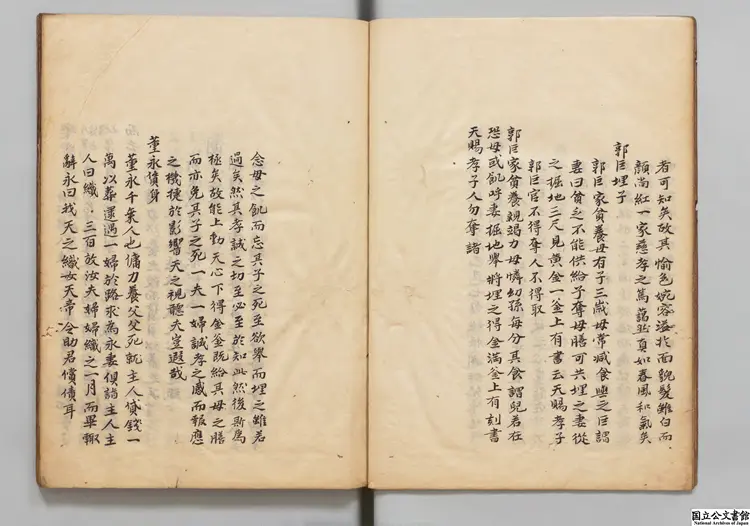 者可知矣故其愉色婉容溢於面貌髮雖白而
顏尚紅一家慈孝之篤藹然真如春風和氣矣
郭巨埋子
郭巨家貧養母有子三歲母常減食與之巨謂
妻曰貧乏不能供給子奪母膳可共埋之妻從
之掘地三尺見黃金一釜上有書云天賜孝子
郭巨官不得奪人不得取
郭巨家貧養親竭力母憐幼孫每分其食謂兒若在
恐母或飢呼妻掘地舉將埋之得金滿釜上有刻書
天賜孝子人勿奪諸
念母之飢而忘其子之死至欲舉而埋之雖若
過矣然其孝誠之切至必至於如此然後斯爲
極矣故能上動天心下得金釜既給其母之膳
而亦免其子之死一夫一婦誠孝之感而報應
之機捷於影響天之視聽夫豈遐哉
董永貸身
董永千乘人也傭力養父父死就主人貸錢一
萬以葬還遇一婦於路求爲永妻俱詣主人主
人曰織三百放汝夫婦婦織之一月而畢輒
辭永曰我天之織女天帝令助君償債耳
国立公文書館
National Archives of Japan